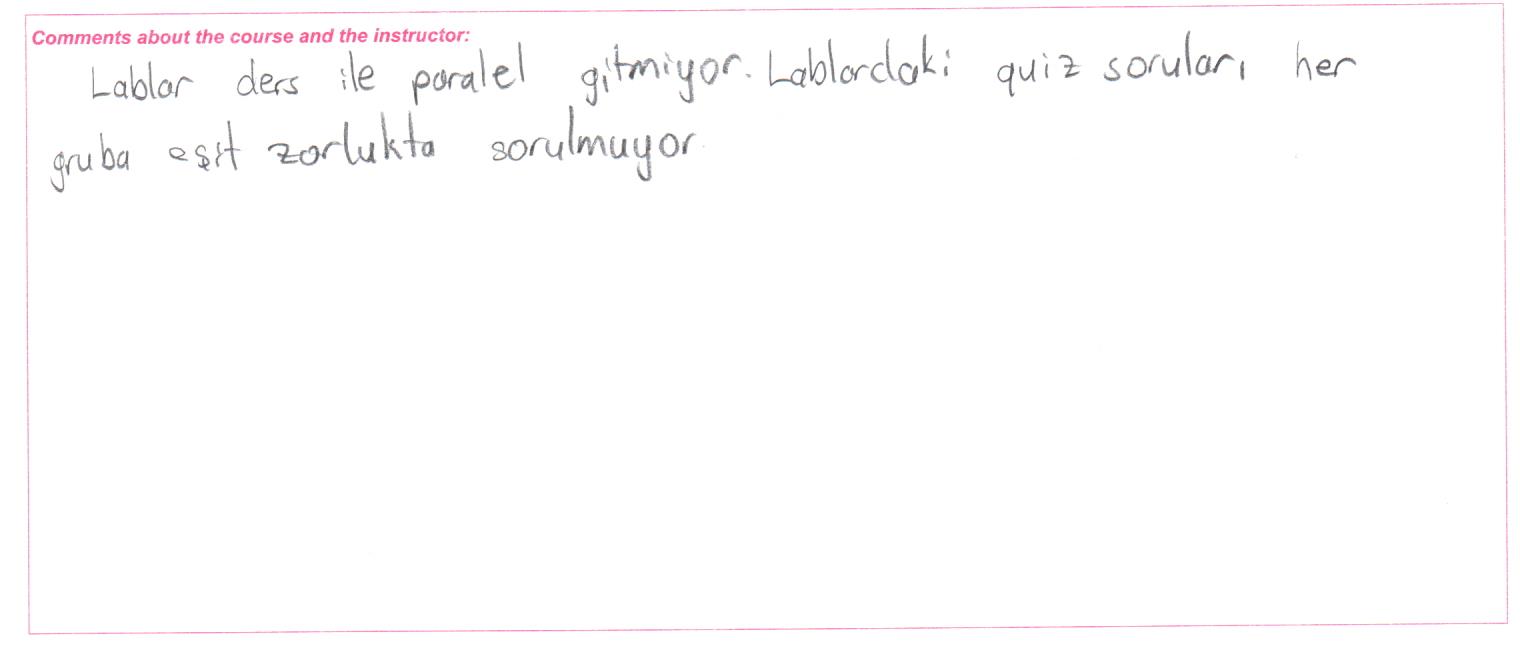 Comments about the course and the instructor:
Lablar ders ile paralel gitmiyor. Lablardaki quiz soruları her
gruba eşit zorlukta sorulmuyor.